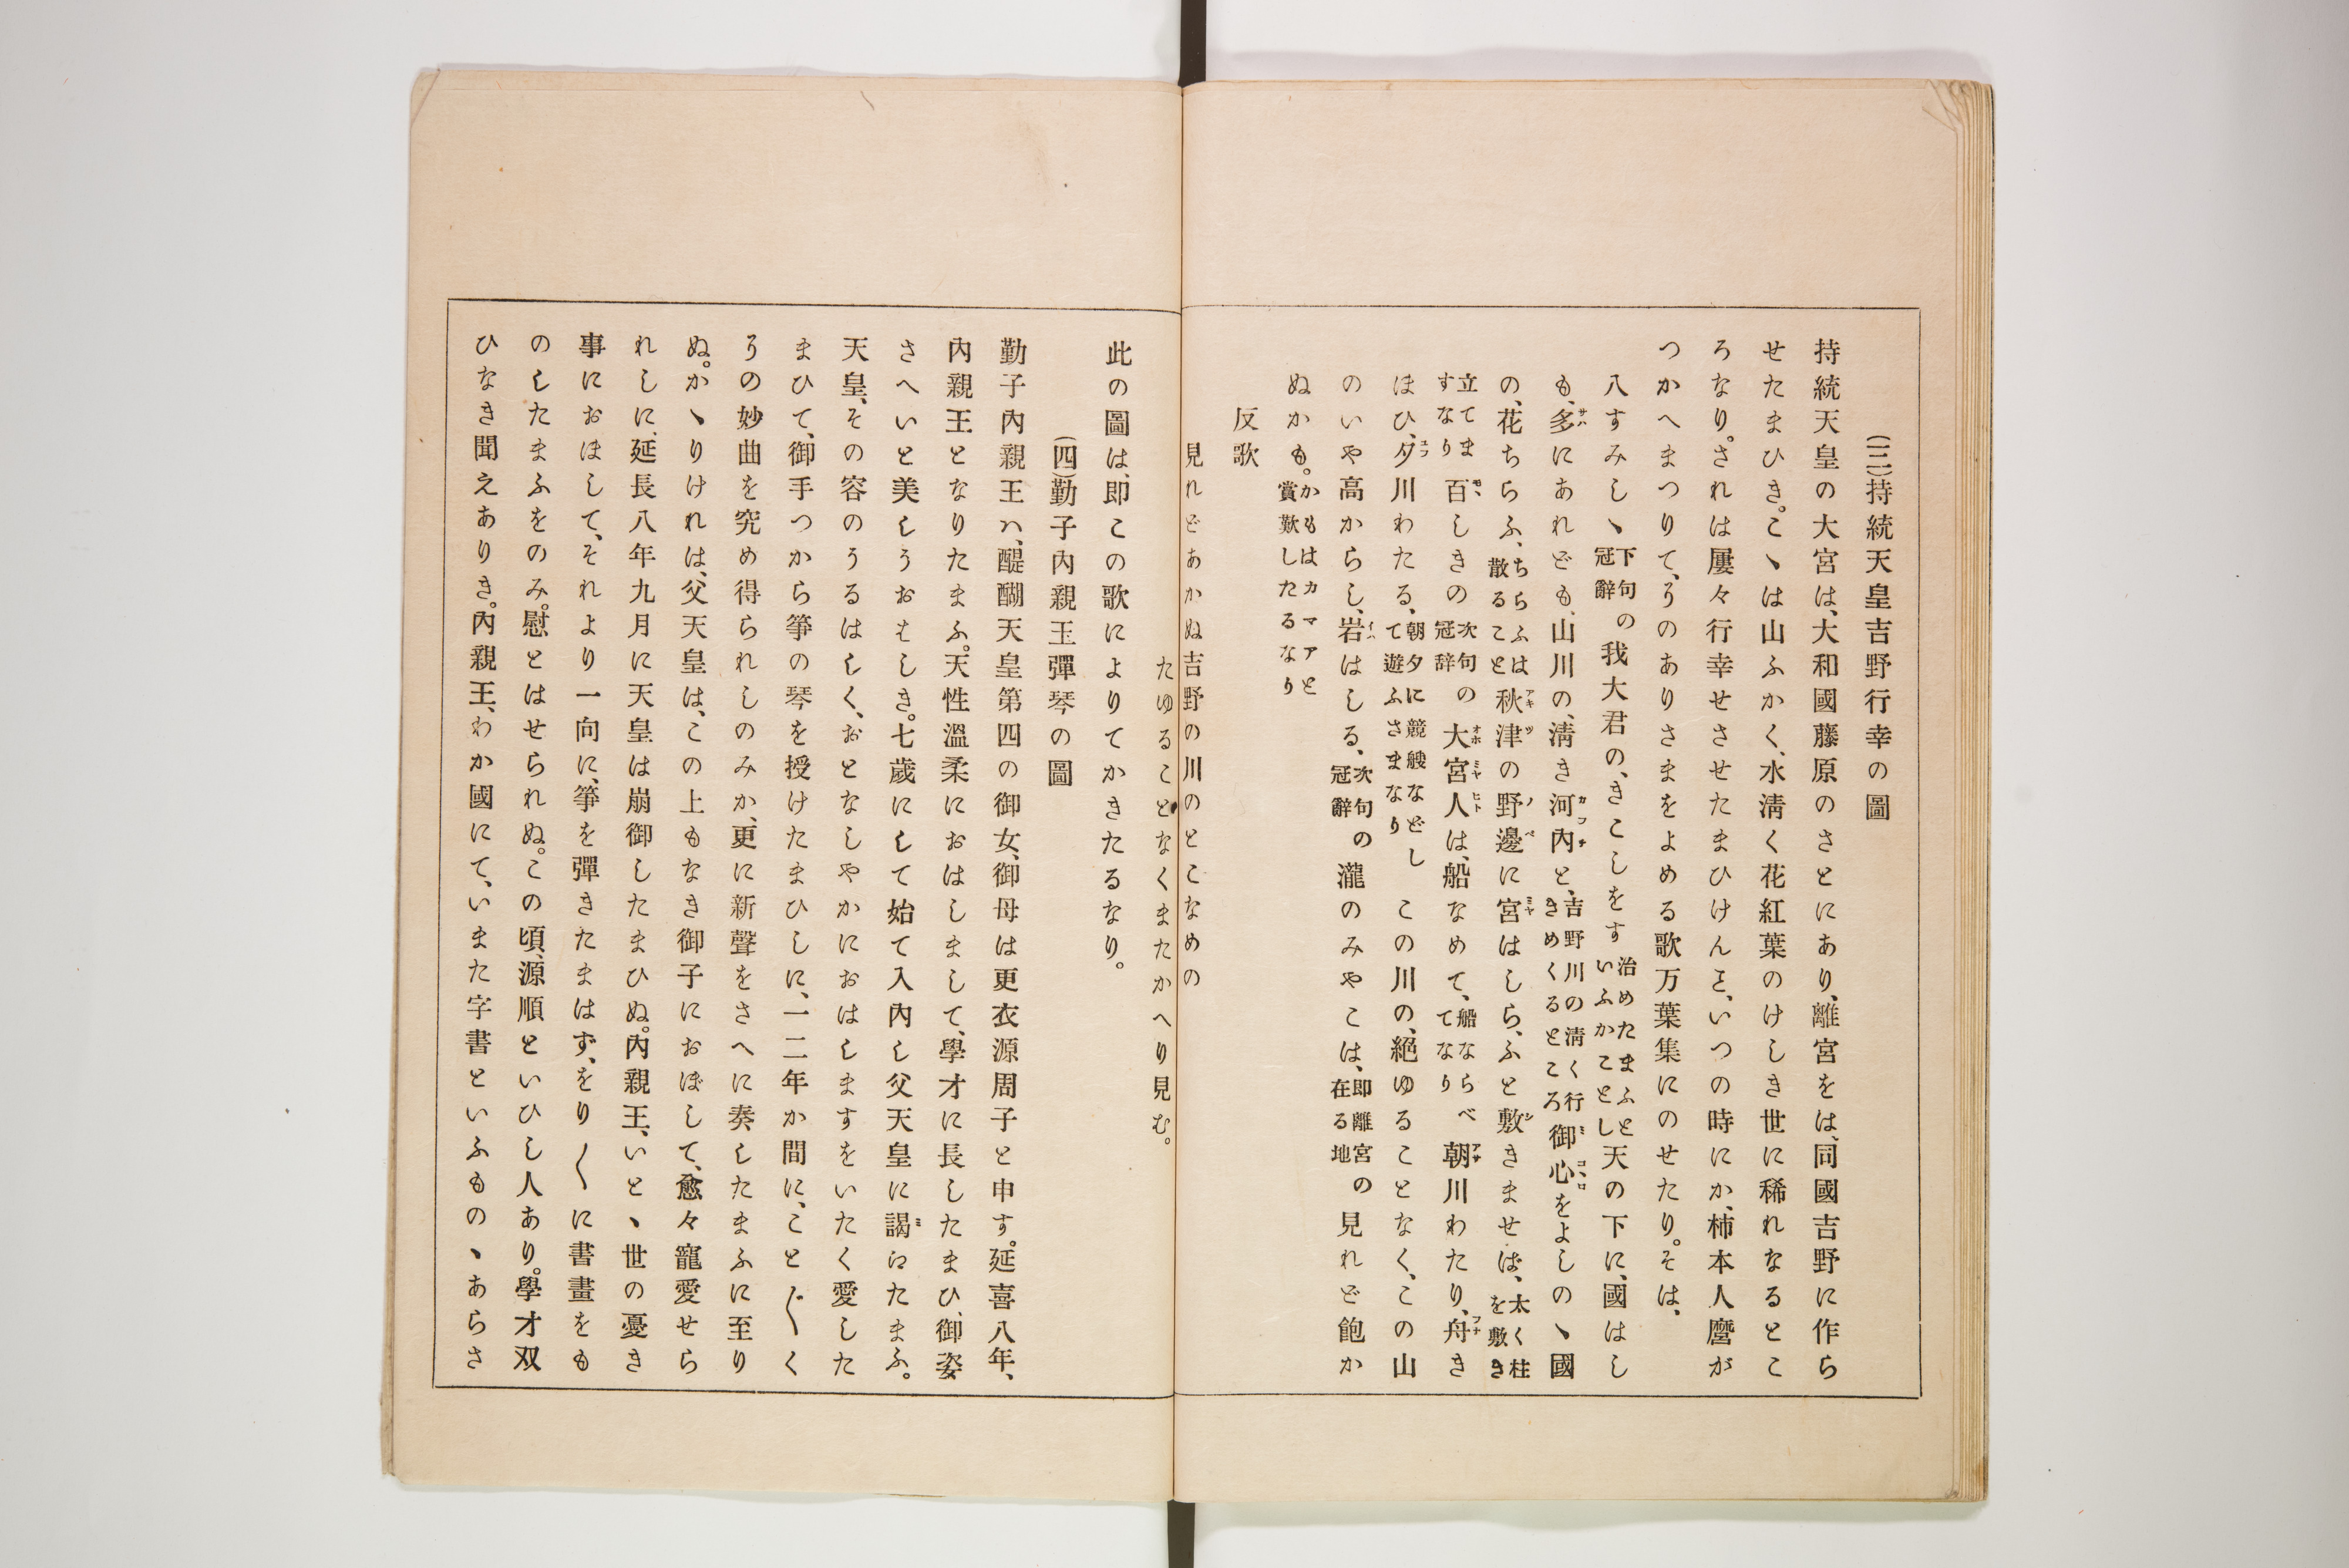 (三)持統天皇吉野行幸の圖
持統天皇の大宮は、大和國藤原のさとにあり、離宮をは、同國吉野に作ら
せたまひき。こゝは山ふかく、水淸く花紅葉のけしき世に稀れなるとこ
ろなり。されは屢々行幸せさせたまひけんを、いつの時にか、柿本人麿が
つかへまつりて、そのありさまをよめる歌万葉集にのせたり。そは、
八すみしゝ下句の冠辭我大君の、きこしをす治めたまふといふかことし天の下に、國はし
も、多にあれども、山川の、淸き河內と、吉野川の淸く行きめくるところ御心をよしのゝ國
の、花ちらふ、ちらふは散ること秋津の野邊に宮はしら、ふと敷きませば、太く柱を敷き
立てますなり百しきの次句の冠辞大宮人は、船なめて、船ならべてなり朝川わたり、舟き
ほひ、夕川わたる、朝夕に競艘などして遊ふさまなりこの川の、絕ゆることなく、この山
のいや高からし、岩はしる、次句の冠辭瀧のみやこは、即離宮の在る地見れど飽か
ぬかも。かもはカマアと賞歎したるなり
反歌
見れどあかぬ吉野の川のとこなめの
たゆることなくまたかへり見む。
此の圖は、即この歌によりてかきたるなり。
(四)勤子內親王彈琴の圖
勤子內親王ハ、醍醐天皇第四の御女、御母は更衣源周子と申す。延喜八年、
內親王となりたまふ。天性溫柔におはしまして、學才に長したまひ、御姿
さへいと美しうおはしき。七歲にして始て入內し父天皇に謁えたまふ。
天皇、その容のうるはしく、おとなしやかにおはしますをいたく愛した
まひて、御手つから箏の琴を授けたまひしに、一二年か間に、こと〴〵く
その妙曲を究め得られしのみか、更に新聲をさへに奏したまふに至り
ぬ。かゝりけれは、父天皇は、この上もなき御子におぼして、愈々寵愛せら
れしに、延長八年九月に天皇は崩御したまひぬ。內親王、いとゝ世の憂き
事におほして、それより一向に、箏を彈きたまはず、をり〳〵に書畫をも
のしたまふをのみ。慰とはせられぬ。この頃、源順といひし人あり。學才双
ひなき聞えありき。內親王、わか國にて、いまた字書といふものゝあらさ